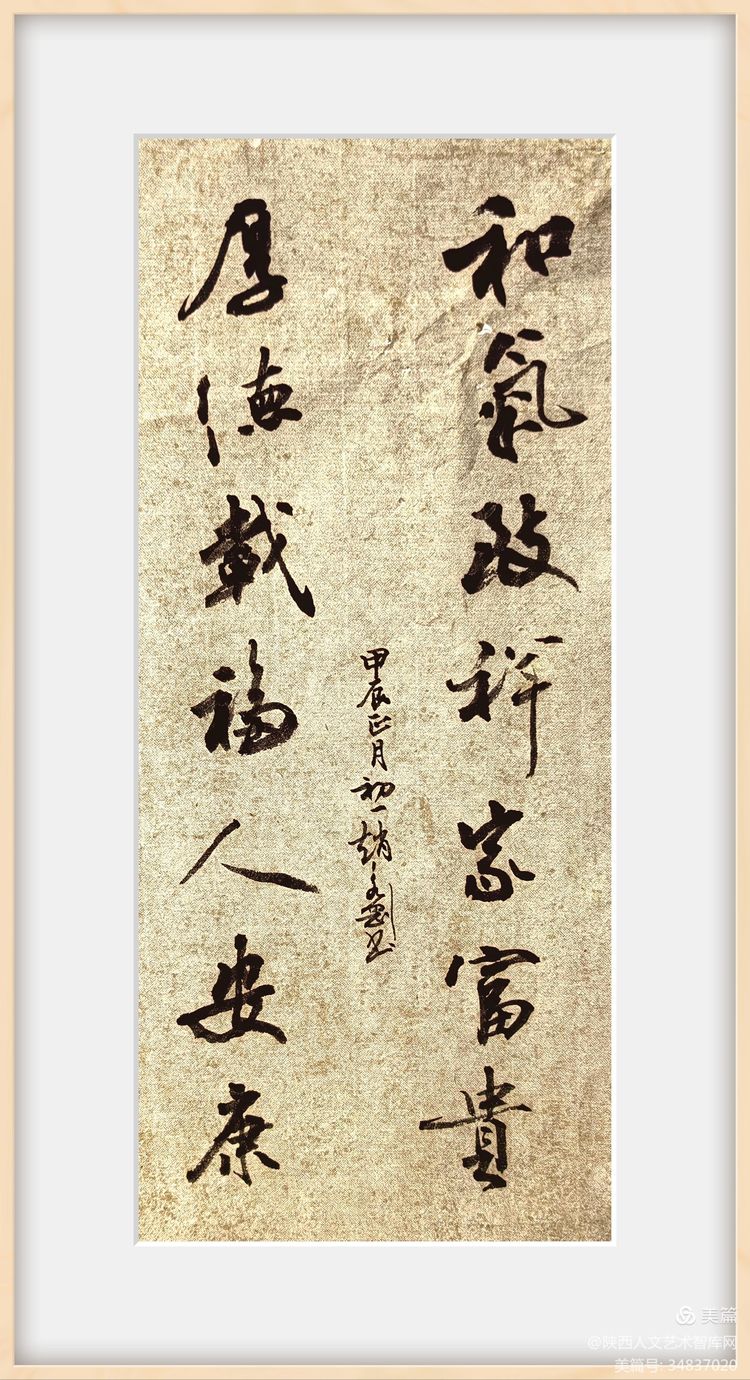 和氣致祥家富貴
厚德載福人安康
甲辰正月初一趙永劉書
美篇
@陕西人文艺术智库网
美篇号: 34837020